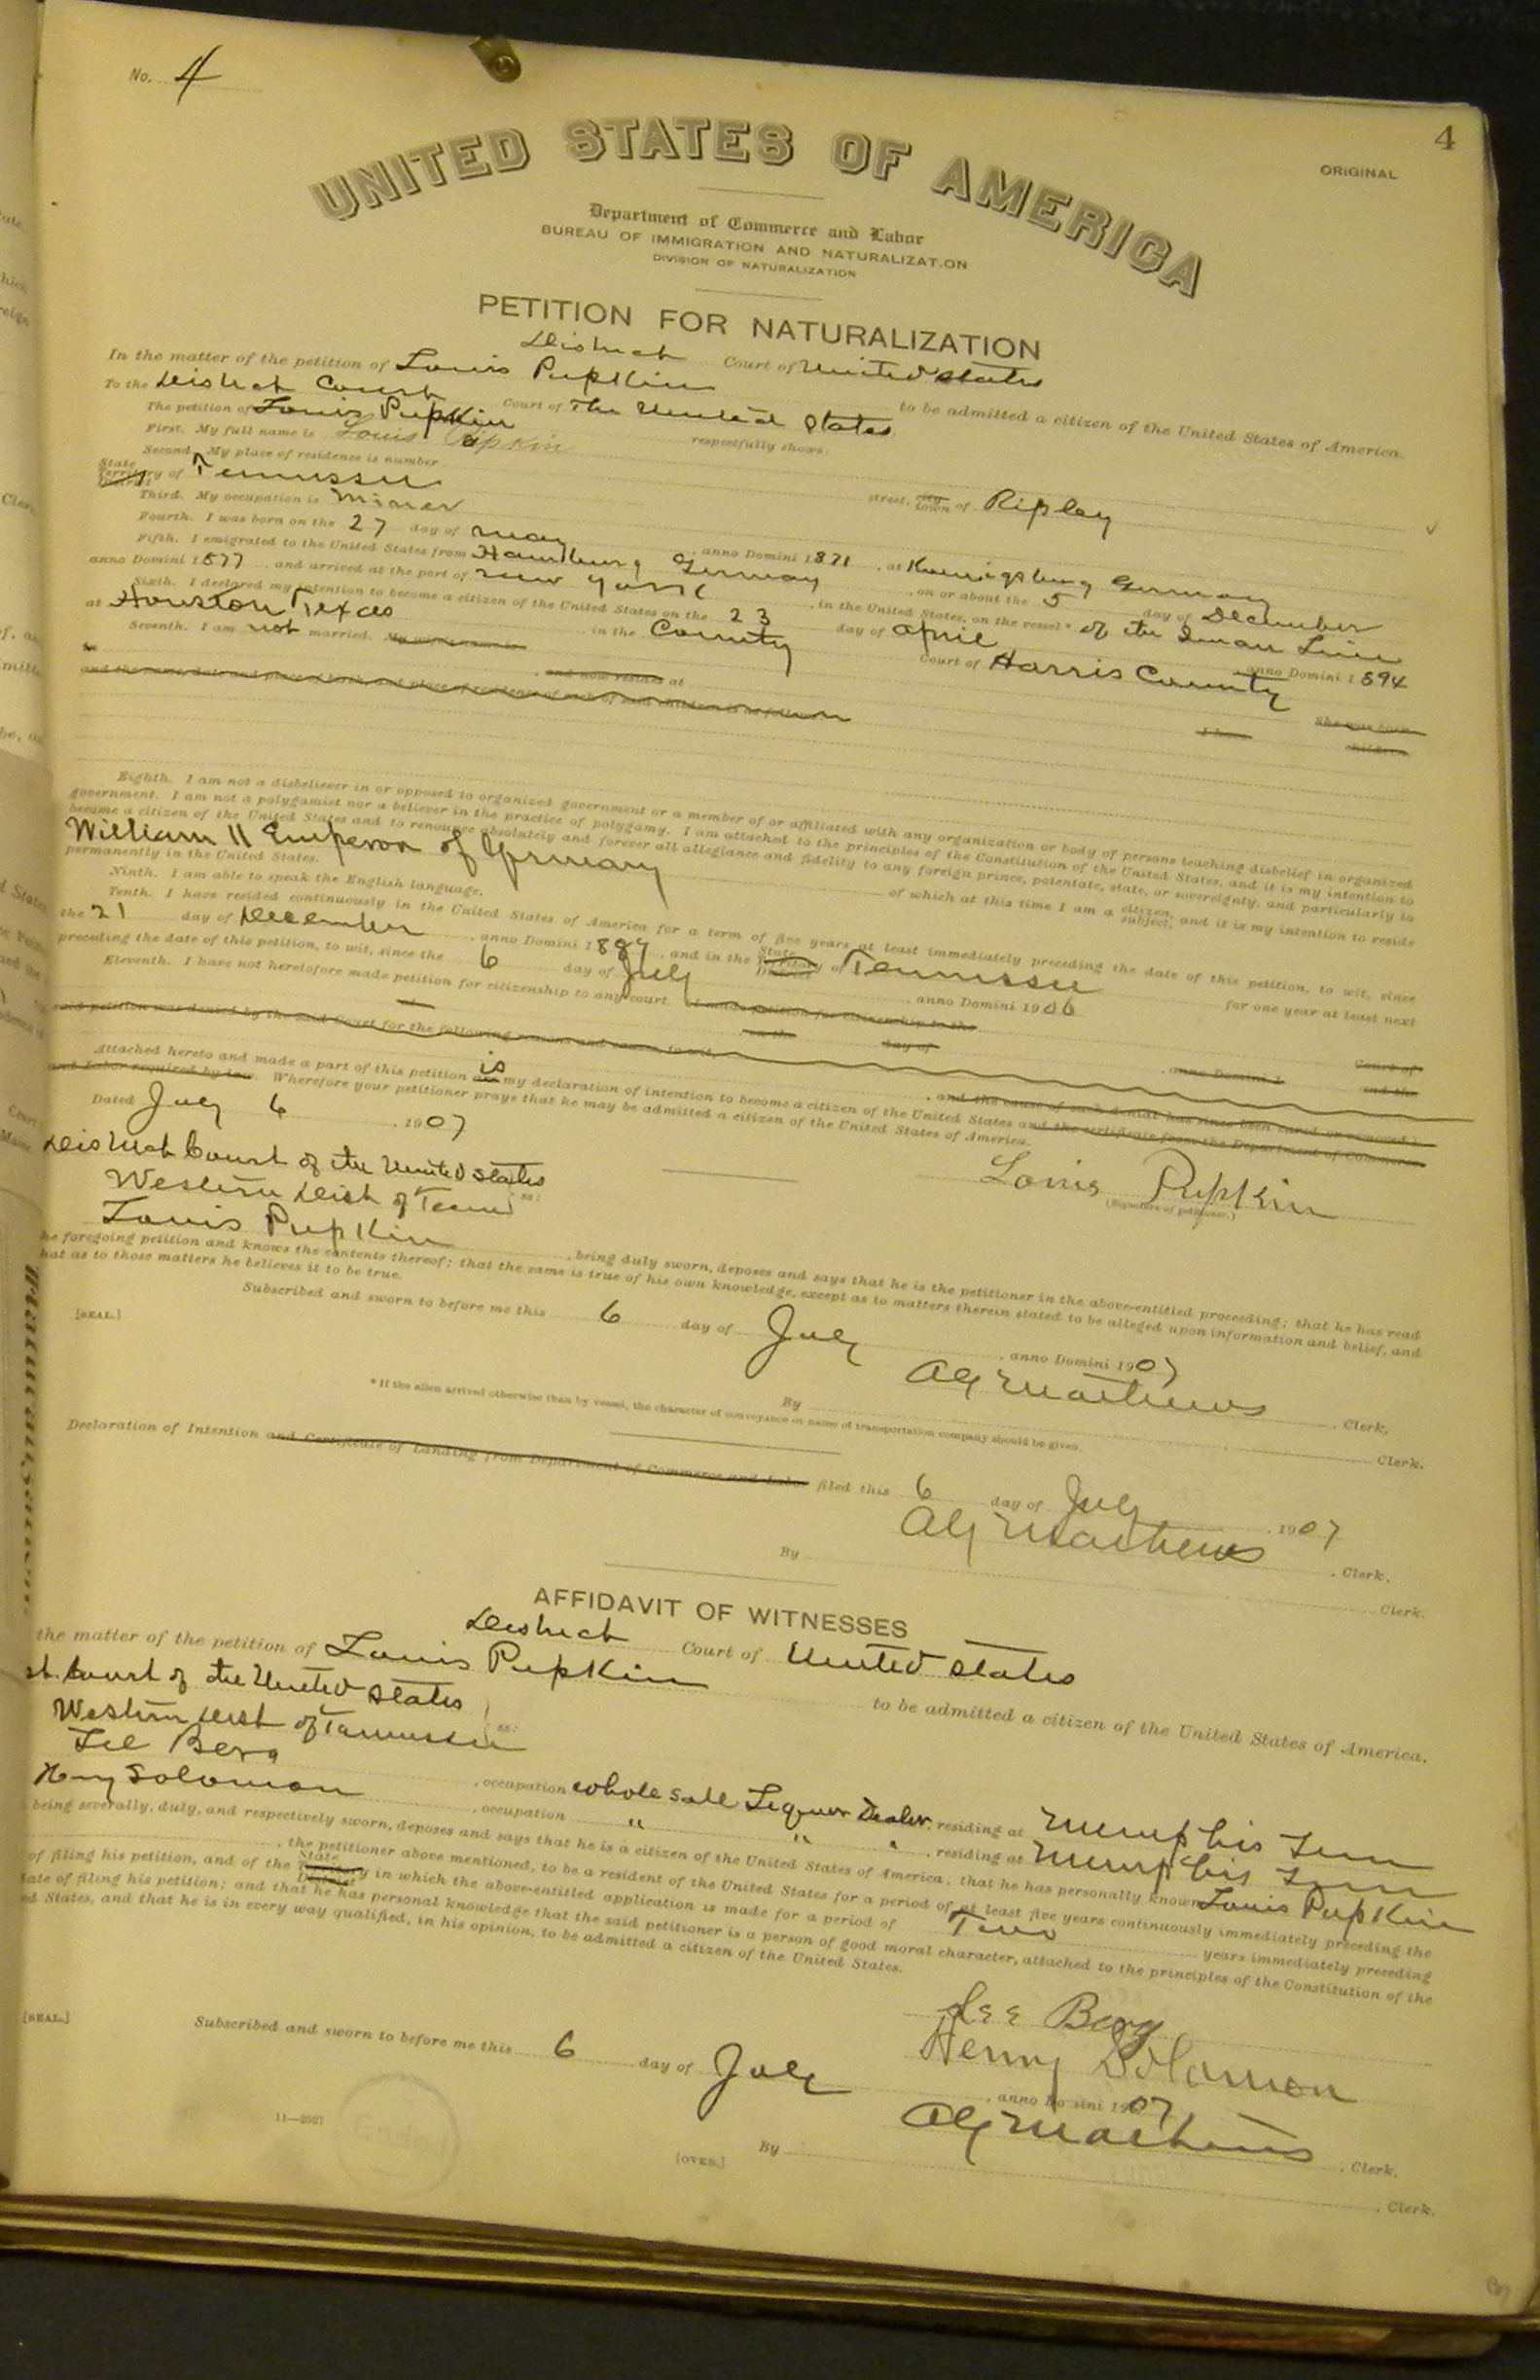 No. 4
4
ORIGINAL
UNITED STATES OF AMERICA
Department of Commerce and Labor
BUREAU OF IMMIGRATION AND NATURALIZATION
DIVISION OF NATURALIZATION
PETITION FOR NATURALIZATION
District Court of United States
In the matter of the petition of Louis Pupkin to be admitted a citizen of the United States of America.
To the District Court Court of The United States
The petition of Louis Pupkin respectfully shows:
First. My full name is Louis Pupkin
Second. My place of residence is number street, city town of Ripley
State Territory District of Tennessee
Third. My occupation is
Fourth. I was born on the 27 day of May, anno Domini 1871, at Koenigsburg Germany
Fifth. I emigrated to the United States from Hamburg Germany, on or about the 5 day of December
anno Domini 1877 and arrived at the port of New York, in the United States, on the vessel* of the Inman Line
Sixth. I declared my intention to become a citizen of the United States on the 23 day of April, anno Domini 1894
at Houston Texas in the County Court of Harris County
Seventh. I am not married. My wife's name is She was born
in, and now resides at I have children
and the name, date and place of birth, and place of residence of each of said children is as follows:
Eighth. I am not a disbeliever in or opposed to organized government or a member of or affiliated with any organization or body of persons teaching disbelief in organized
government. I am not a polygamist nor a believer in the practice of polygamy. I am attached to the principles of the Constitution of the United States, and it is my intention to
become a citizen of the United States and to renounce absolutely and forever all allegiance and fidelity to any foreign prince, potentate, state, or sovereignty, and particularly to
William II Emperor of Germany of which at this time I am a citizen, subject, and it is my intention to reside
permanently in the United States.
Ninth. I am able to speak the English language.
Tenth. I have resided continuously in the United States of America for a term of five years at least immediately preceding the date of this petition, to wit, since
the 21 day of December, anno Domini 18, and in the State Territory District of Tennessee for one year at least next
preceding the date of this petition, to wit, since the 6 day of July, anno Domini 1906
Eleventh. I have not heretofore made petition for citizenship to any court. I made petition for citizenship to the Court of
at on the day of, anno Domini 1 and the
said petition was denied by the said Court for the following reasons and causes, to wit, and the cause of such denial has since been cured or removed.
Attached hereto and made a part of this petition are is my declaration of intention to become a citizen of the United States and the certificate from the Department of Commerce
and Labor required by law. Wherefore your petitioner prays that he may be admitted a citizen of the United States of America.
Dated July 6, 1907
Louis Pupkin
(Signature of petitioner.)
District Court of the United States
Western Dist of Tenn ss:
Louis Pupkin, being duly sworn, deposes and says that he is the petitioner in the above-entitled proceeding; that he has read
he foregoing petition and knows the contents thereof; that the same is true of his own knowledge, except as to matters therein stated to be alleged upon information and belief, and
hat as to those matters he believes it to be true.
[SEAL.]
Subscribed and sworn to before me this 6 day of July, anno Domini 1907
Mathews, Clerk.
By Clerk.
* If the alien arrived otherwise than by vessel, the character of conveyance or name of transportation company should be given.
Declaration of Intention and Certificate of Landing from Department of Commerce and Labor filed this 6 day of July, 1907
Mathews, Clerk.
By Clerk.
AFFIDAVIT OF WITNESSES
District Court of United States
the matter of the petition of Louis Pupkin to be admitted a citizen of the United States of America.
st. Court of the United States
Western Dist of Tennessee ss:
Lee Berg, occupation whole sale Liquor Dealer, residing at Memphis Tenn
Henry Solomon, occupation " " ", residing at Memphis Tenn
being severally, duly, and respectively sworn, deposes and says that he is a citizen of the United States of America, that he has personally known Louis Pupkin
, the petitioner above mentioned, to be a resident of the United States for a period of at least five years continuously immediately preceding the
of filing his petition, and of the State Territory District in which the above-entitled application is made for a period of Two years immediately preceding
date of filing his petition; and that he has personal knowledge that the said petitioner is a person of good moral character, attached to the principles of the Constitution of the
ed States, and that he is in every way qualified, in his opinion, to be admitted a citizen of the United States.
Lee Berg
Henry Solomon
[SEAL.]
Subscribed and sworn to before me this 6 day of July, anno Domini 1907
Mathews, Clerk.
By Clerk.
11—2527
[OVER.]